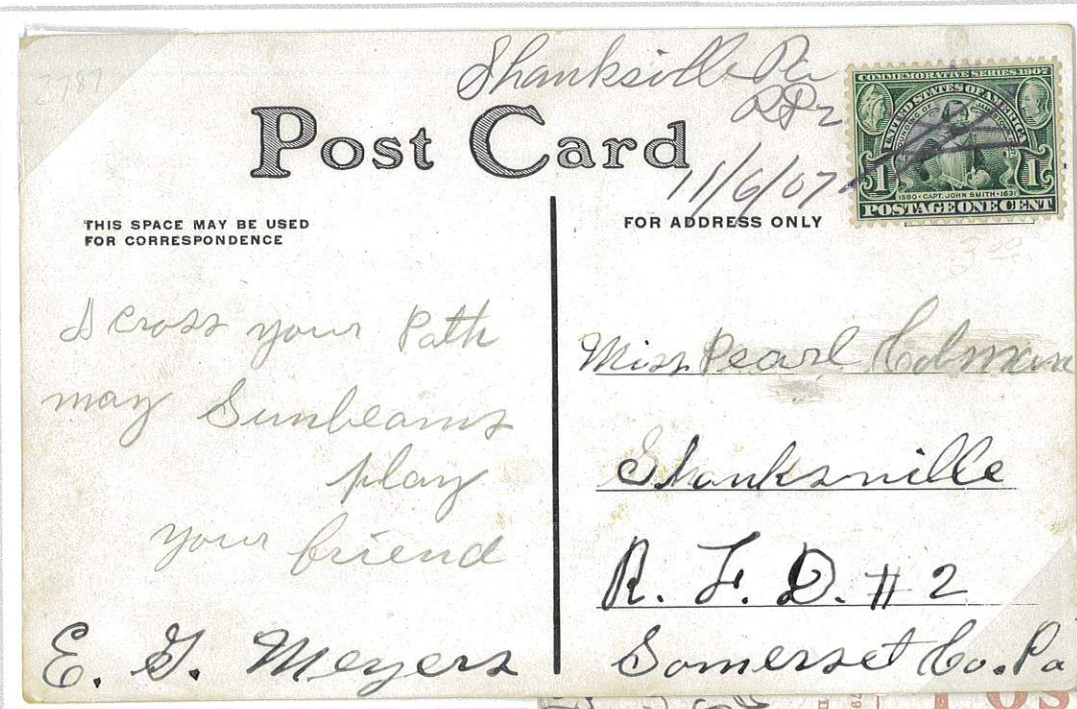 2787
Shanksville Pa
RD2
11/6/07
COMMEMORATIVE SERIES 1907
UNITED STATES OF AMERICA
1 1
1580 · CAPT. JOHN SMITH · 1631
POSTAGE ONE CENT
Post Card
THIS SPACE MAY BE USED
FOR CORRESPONDENCE
FOR ADDRESS ONLY
Across your Path
may Sunbeams
play
your friend
E. G. Meyers
Miss Pearl
Shanksville
R. F. D. # 2
Somerset Co. Pa